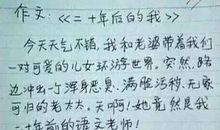 作文：《二十年后的我》
今天天气不错，我和老婆带着我们
一对可爱的儿女环游世界。突然，路
边冲出一个浑身恶臭、满脸污秽、无家
可归的老太太。天啊！她竟然是我
二十年前的语文老师！